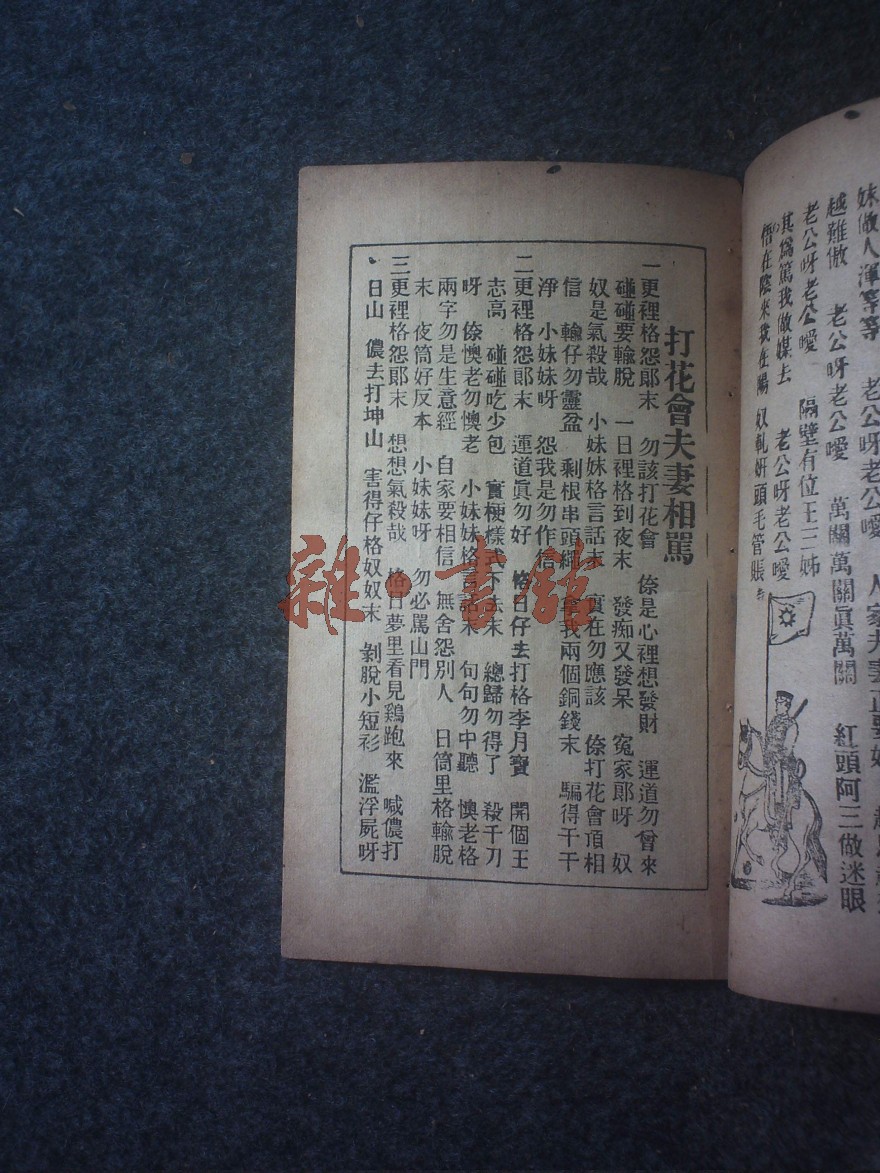 妹做人渾等等　老公呀老公噯　人家夫妻正要好
越難做　老公呀老公噯　萬關萬關眞萬關　紅頭阿三做迷眼
老公呀老公噯　隔壁有位王三姊
其爲篤我做媒去　老公呀老公噯
悟在陰來我在陽　奴軋姘頭毛管賬
打花會夫妻相駡
一更裡格怨郎末　勿該打花會　倷是心裡想發財　運道勿曾來
碰碰要輸脫　一日裡格到夜末　發痴又發呆　寃家郎呀　奴
奴是氣殺哉　小妹妹格言話末　實在勿應該　倷打花會頂相
信　輸仔勿靈盆　剩根串頭繩　拿我兩個銅錢末　騙得干干
淨　小妹妹呀　怨我是勿作
二更裡格怨郎末　運道眞勿好　格日仔去打格李月寶　開個王
志高　碰碰吃少包　實梗樣式下去末　總歸勿得了　殺千刀
呀　倷懊老勿懊老　小妹妹格言話末　句句勿中聽　懊老格
兩字勿是生意經　自家要相信　無舍怨別人　日筒里格輸脫
末　夜筒好反本　小妹妹呀　勿必駡山門
三更裡格怨郎末　想想氣殺哉　格日夢里看見鷄跑來　喊儂打
日山　儂去打坤山　害得仔格奴奴末　剝脫小短衫　濫浮屍呀
雜·書館